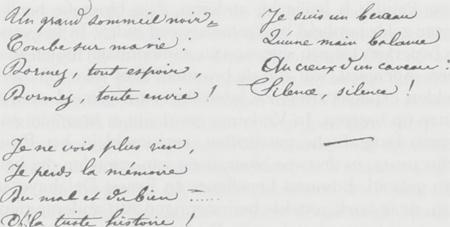 Un grand sommeil noir
Tombe sur ma vie :
Dormez, tout espoir,
Dormez, toute envie !
Je ne vois plus rien,
Je perds la mémoire
Du mal et du bien ......
O la triste histoire !
Je suis un berceau
Qu'une main balance
Au creux d'un caveau :
Silence, silence !